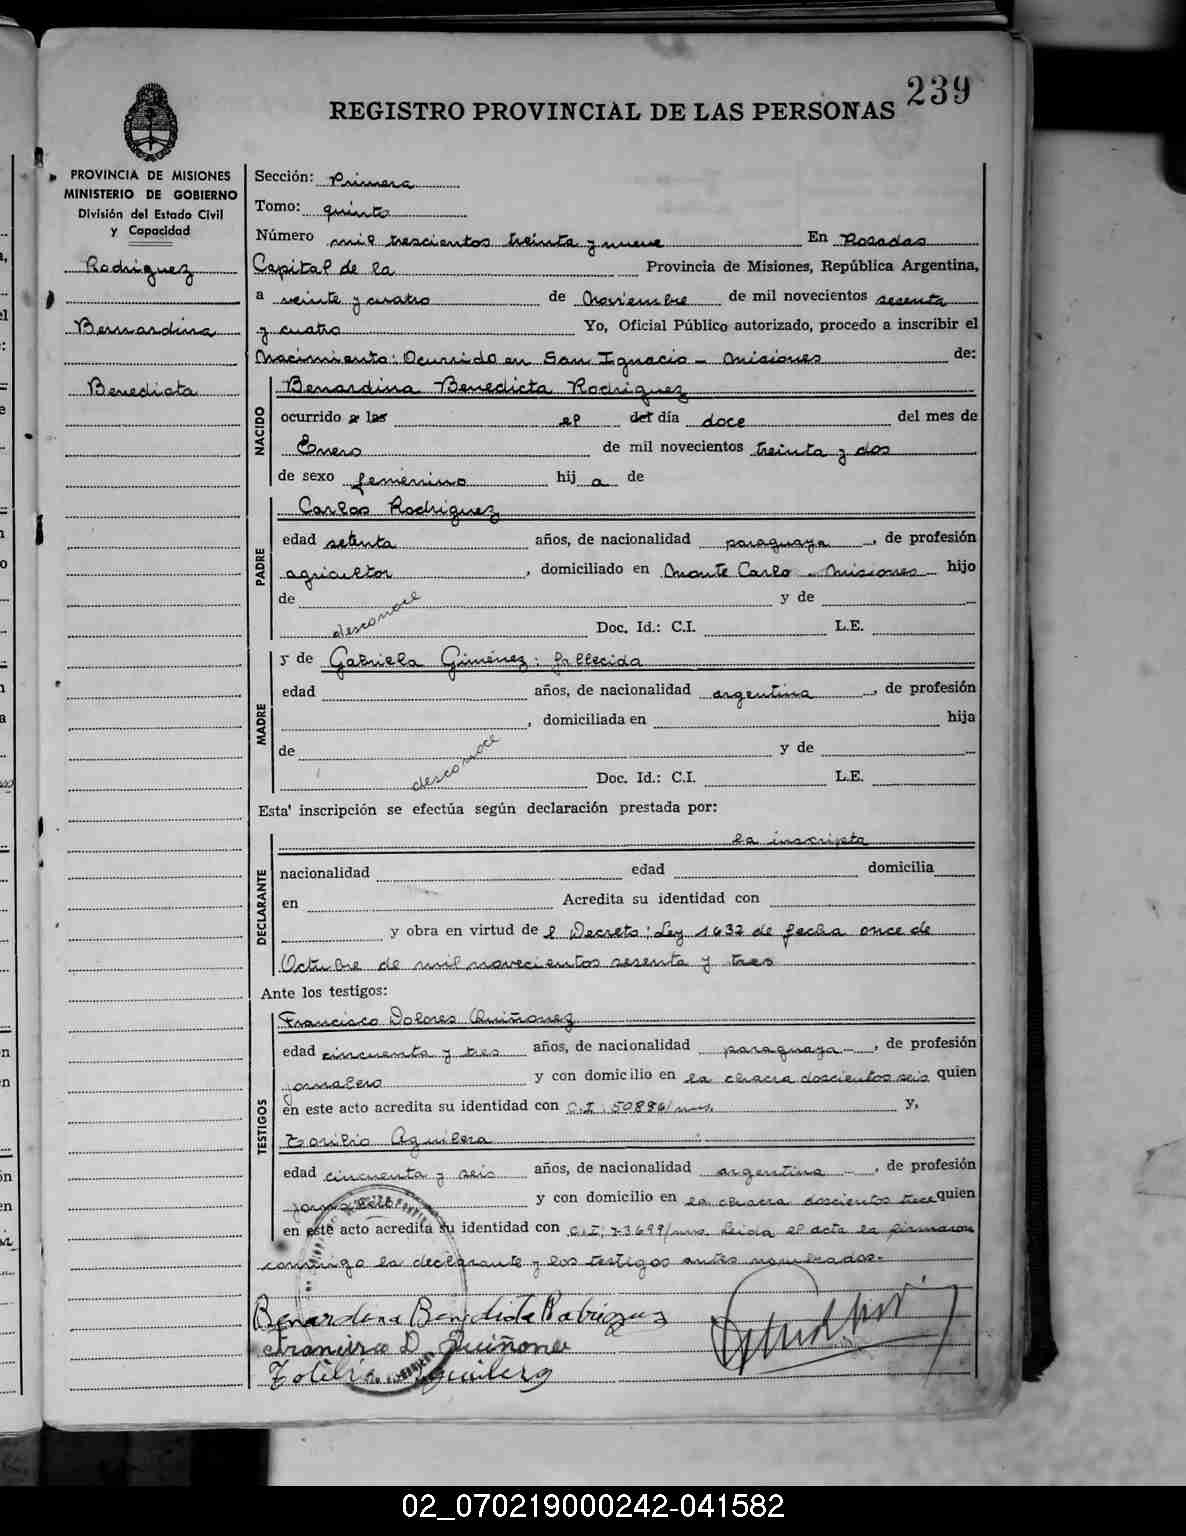 239
REGISTRO PROVINCIAL DE LAS PERSONAS
PROVINCIA DE MISIONES
MINISTERIO DE GOBIERNO
División del Estado Civil
y Capacidad
Rodriguez
Bernardina
Benedicta
Sección: Primera
Tomo: quinto
Número mil trescientos treinta y nueve En Posadas
Capital de la Provincia de Misiones, República Argentina,
a veinte y cuatro de Noviembre de mil novecientos sesenta
y cuatro Yo, Oficial Público autorizado, procedo a inscribir el
Nacimiento: Ocurrido en San Ignacio - Misiones de:
NACIDO
Benardina Benedicta Rodriguez
ocurrido a las el del día doce del mes de
Enero de mil novecientos treinta y dos
de sexo femenino hij a de
PADRE
Carlos Rodriguez
edad setenta años, de nacionalidad paraguaya, de profesión
agricultor, domiciliado en Monte Carlo - Misiones hijo
de y de
desconoce Doc. Id.: C.I. L.E.
MADRE
y de Gabriela Giménez: fallecida
edad años, de nacionalidad argentina, de profesión
, domiciliada en hija
de y de
desconoce Doc. Id.: C.I. L.E.
Esta' inscripción se efectúa según declaración prestada por:
DECLARANTE
la inscripta
nacionalidad edad domicilia
en Acredita su identidad con
y obra en virtud de l Decreto: Ley 1632 de fecha once de
Octubre de mil novecientos sesenta y tres
Ante los testigos:
TESTIGOS
Francisco Dolores Quiñonez
edad cincuenta y tres años, de nacionalidad paraguaya, de profesión
jornalero y con domicilio en la chacra doscientos seis quien
en este acto acredita su identidad con C.I: 50886/mns. y,
Torilio Aguilera
edad cincuenta y seis años, de nacionalidad argentina, de profesión
jornalero y con domicilio en la chacra doscientos trece quien
en este acto acredita su identidad con C.I; 23699/mns. Leida el acta la firmaron
conmigo la declarante y los testigos antes nombrados.-
Benardena Benidida Rodriguez
Francisco D. Quiñone
Aguilera
02_070219000242-041582